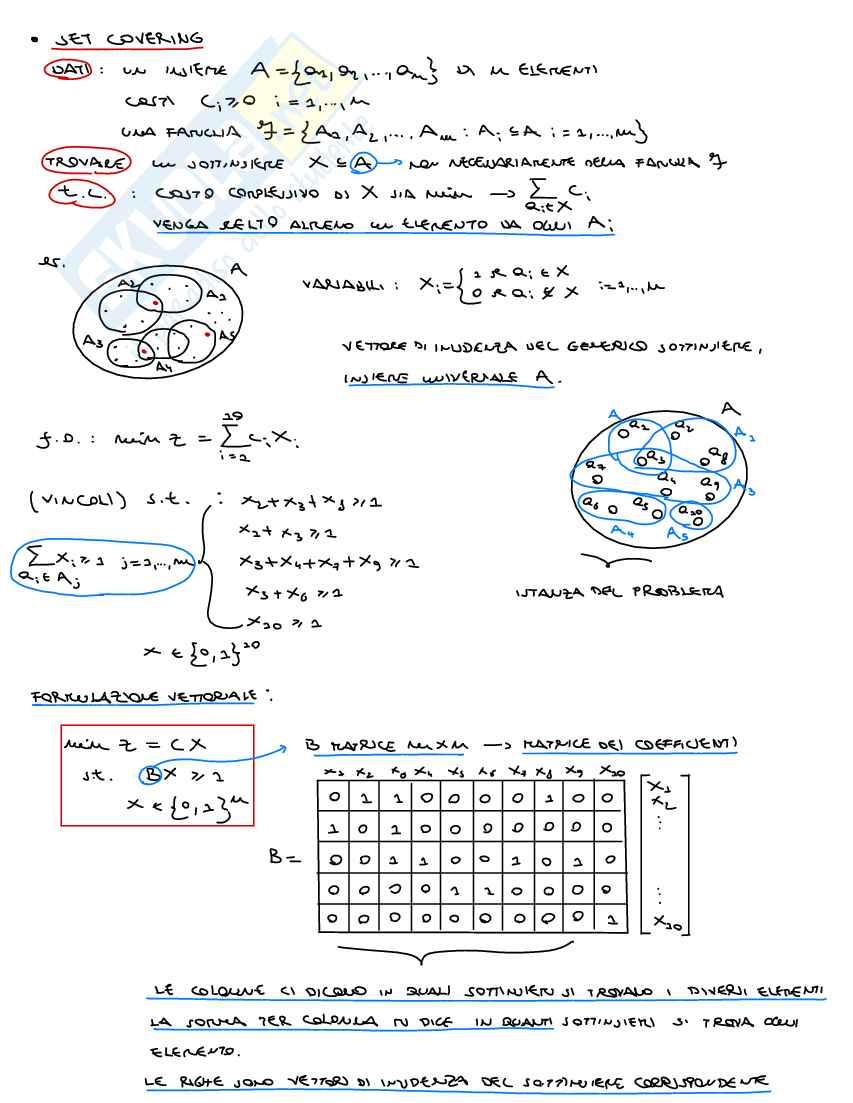 • SET COVERING
DATI : UN INSIEME A = {a1, a2, ..., an} DI n ELEMENTI
COSTI Ci ≥ 0 i = 1,...,n
UNA FAMIGLIA F = {A1, A2, ..., Am : Ai ⊆ A i = 1,...,m}
TROVARE UN SOTTINSIEME X ⊆ A → NON NECESSARIAMENTE DELLA FAMIGLIA F
t.c. : COSTO COMPLESSIVO DI X SIA min → ∑ ai∈X Ci
VENGA SCELTO ALMENO UN ELEMENTO DA OGNI Ai
es.
A
A2
A1
A3
A5
A4
VARIABILI : Xi = { 1 se ai ∈ X
0 se ai ∉ X i = 1,...,n
VETTORE DI INCIDENZA DEL GENERICO SOTTINSIEME,
INSIEME UNIVERSALE A.
f.o. : min z = ∑ i=1 10 Ci Xi
(VINCOLI) s.t. : x2 + x3 + x8 ≥ 1
x1 + x3 ≥ 1
∑ ai∈Aj xi ≥ 1 j = 1,...,m
x3 + x4 + x7 + x9 ≥ 1
x5 + x6 ≥ 1
x10 ≥ 1
x ∈ {0,1}^10
A
A
A1
a1
a2
a3
a8
a7
a4
a9
A3
a6
a5
a10
A4
A5
ISTANZA DEL PROBLEMA
FORMULAZIONE VETTORIALE :
min z = CX
s.t. BX ≥ 1
X ∈ {0,1}^n
B MATRICE m×n → MATRICE DEI COEFFICIENTI
x1 x2 x3 x4 x5 x6 x7 x8 x9 x10
0 1 1 0 0 0 0 1 0 0
1 0 1 0 0 0 0 0 0 0
B = 0 0 1 1 0 0 1 0 1 0
0 0 0 0 1 1 0 0 0 0
0 0 0 0 0 0 0 0 0 1
x1
x2
⋮
⋮
x10
LE COLONNE CI DICONO IN QUALI SOTTINSIEMI SI TROVANO I DIVERSI ELEMENTI
LA SOMMA PER COLONNA TI DICE IN QUANTI SOTTINSIEMI SI TROVA OGNI
ELEMENTO.
LE RIGHE SONO VETTORI DI INCIDENZA DEL SOTTINSIEME CORRISPONDENTE